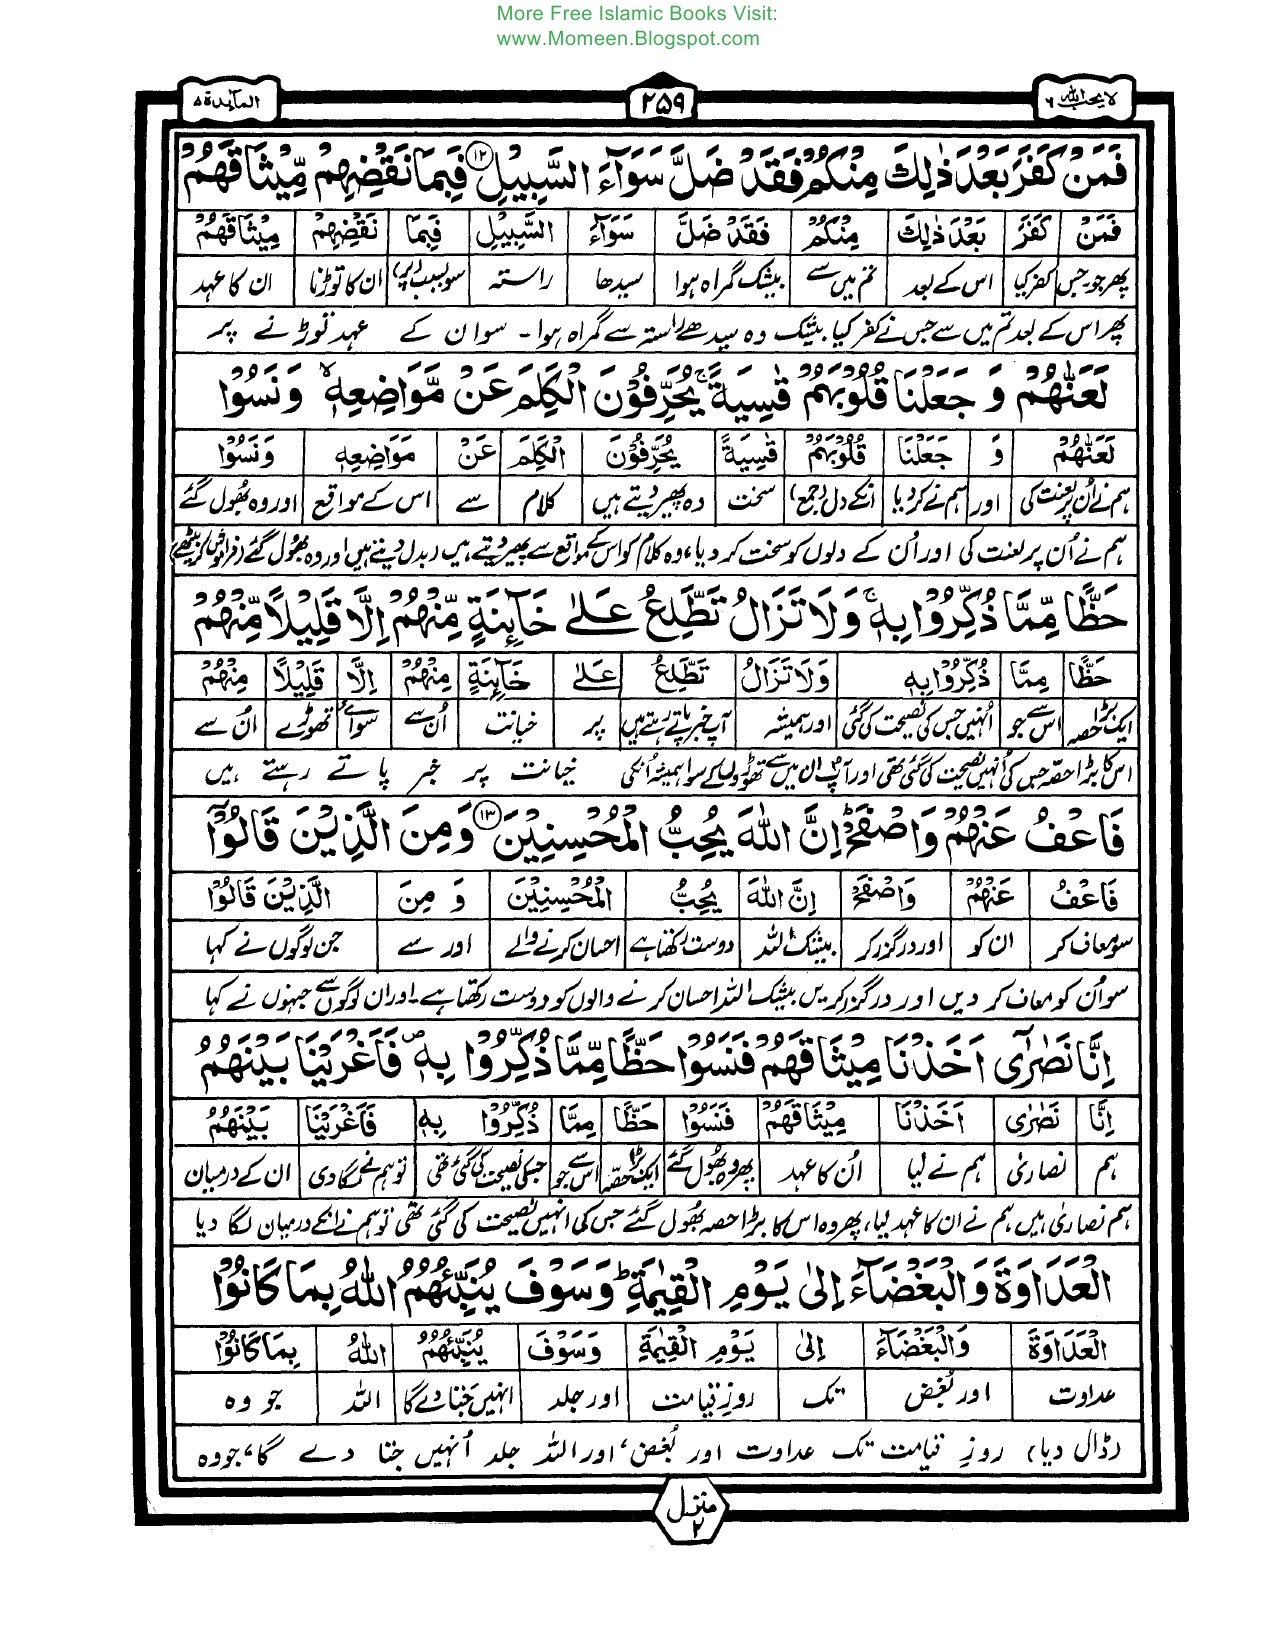 More Free Islamic Books Visit:
www.Momeen.Blogspot.com
لا يحب الله ٦
٢٥٩
المآئدة ٥
فَمَنْ كَفَرَ بَعْدَ ذٰلِكَ مِنْكُمْ فَقَدْ ضَلَّ سَوَآءَ السَّبِيْلِ ١٢ فَبِمَا نَقْضِهِمْ مِّيْثَاقَهُمْ
فَمَنْ كَفَرَ بَعْدَ ذٰلِكَ مِنْكُمْ فَقَدْ ضَلَّ سَوَآءَ السَّبِيْلِ فَبِمَا نَقْضِهِمْ مِيْثَاقَهُمْ
پھر جو جس کفر کیا اس کے بعد تم میں سے بیشک گمراہ ہوا سیدھا راستہ سو بسبب (پر) ان کا توڑنا ان کا عہد
پھر اس کے بعد تم میں سے جس نے کفر کیا بیشک وہ سیدھے راستہ سے گمراہ ہوا۔ سو ان کے عہد توڑنے پر
لَعَنّٰهُمْ وَ جَعَلْنَا قُلُوْبَهُمْ قٰسِيَةً ۚ يُحَرِّفُوْنَ الْكَلِمَ عَنْ مَّوَاضِعِهٖ ۙ وَ نَسُوْا
لَعَنّٰهُمْ وَ جَعَلْنَا قُلُوْبَهُمْ قٰسِيَةً يُحَرِّفُوْنَ الْكَلِمَ عَنْ مَوَاضِعِهٖ وَ نَسُوْا
ہم نے اُن پر لعنت کی اور ہم نے کر دیا انکے دل (جمع) سخت وہ پھیر دیتے ہیں کلام سے اس کے مواقع اور وہ بھول گئے
ہم نے اُن پر لعنت کی اور اُن کے دلوں کو سخت کر دیا، وہ کلام کو اس کے مواقع سے پھیر دیتے ہیں (بدل دیتے ہیں) اور وہ بھول گئے (فراموش کر بیٹھے)
حَظًّا مِّمَّا ذُكِّرُوْا بِهٖ ۚ وَ لَا تَزَالُ تَطَّلِعُ عَلٰى خَآئِنَةٍ مِّنْهُمْ اِلَّا قَلِيْلًا مِّنْهُمْ
حَظًّا مِمَّا ذُكِّرُوْا بِهٖ وَ لَا تَزَالُ تَطَّلِعُ عَلٰى خَآئِنَةٍ مِنْهُمْ اِلَّا قَلِيْلًا مِنْهُمْ
ایک بڑا حصہ اس سے جو اُنہیں جس کی نصیحت کی گئی اور ہمیشہ آپ خبر پاتے رہتے ہیں پر خیانت اُن سے سوائے تھوڑے اُن سے
اس کا بڑا حصہ جس کی اُنہیں نصیحت کی گئی تھی اور آپ ان میں سے تھوڑوں کے سوا ہمیشہ اُنکی خیانت پر خبر پاتے رہتے ہیں
فَاعْفُ عَنْهُمْ وَ اصْفَحْ ؕ اِنَّ اللّٰهَ يُحِبُّ الْمُحْسِنِيْنَ ١٣ وَ مِنَ الَّذِيْنَ قَالُوْٓا
فَاعْفُ عَنْهُمْ وَ اصْفَحْ اِنَّ اللّٰهَ يُحِبُّ الْمُحْسِنِيْنَ وَ مِنَ الَّذِيْنَ قَالُوْٓا
سو معاف کر ان کو اور درگزر کر بیشک اللہ دوست رکھتا ہے احسان کرنے والے اور سے جن لوگوں نے کہا
سو اُن کو معاف کر دیں اور درگزر کریں بیشک اللہ احسان کرنے والوں کو دوست رکھتا ہے۔ اور ان لوگوں سے جنہوں نے کہا
اِنَّا نَصٰرٰٓى اَخَذْنَا مِيْثَاقَهُمْ فَنَسُوْا حَظًّا مِّمَّا ذُكِّرُوْا بِهٖ ۪ فَاَغْرَيْنَا بَيْنَهُمُ
اِنَّا نَصٰرٰى اَخَذْنَا مِيْثَاقَهُمْ فَنَسُوْا حَظًّا مِمَّا ذُكِّرُوْا بِهٖ فَاَغْرَيْنَا بَيْنَهُمُ
ہم نصاریٰ ہم نے لیا اُن کا عہد پھر وہ بھول گئے ایک بڑا حصہ اس سے جو جسکی نصیحت کی گئی تھی تو ہم نے لگا دی ان کے درمیان
ہم نصاریٰ ہیں ہم نے ان کا عہد لیا، پھر وہ اس کا بڑا حصہ بھول گئے جس کی انہیں نصیحت کی گئی تھی تو ہم نے انکے درمیان لگا دیا
الْعَدَاوَةَ وَ الْبَغْضَآءَ اِلٰى يَوْمِ الْقِيٰمَةِ ؕ وَ سَوْفَ يُنَبِّئُهُمُ اللّٰهُ بِمَا كَانُوْا
الْعَدَاوَةَ وَ الْبَغْضَآءَ اِلٰى يَوْمِ الْقِيٰمَةِ وَ سَوْفَ يُنَبِّئُهُمُ اللّٰهُ بِمَا كَانُوْا
عداوت اور بُغض تک روزِ قیامت اور جلد انہیں جتا دے گا اللہ جو وہ
(ڈال دیا) روزِ قیامت تک عداوت اور بُغض، اور اللہ جلد اُنہیں جتا دے گا، جو وہ
منزل ٢